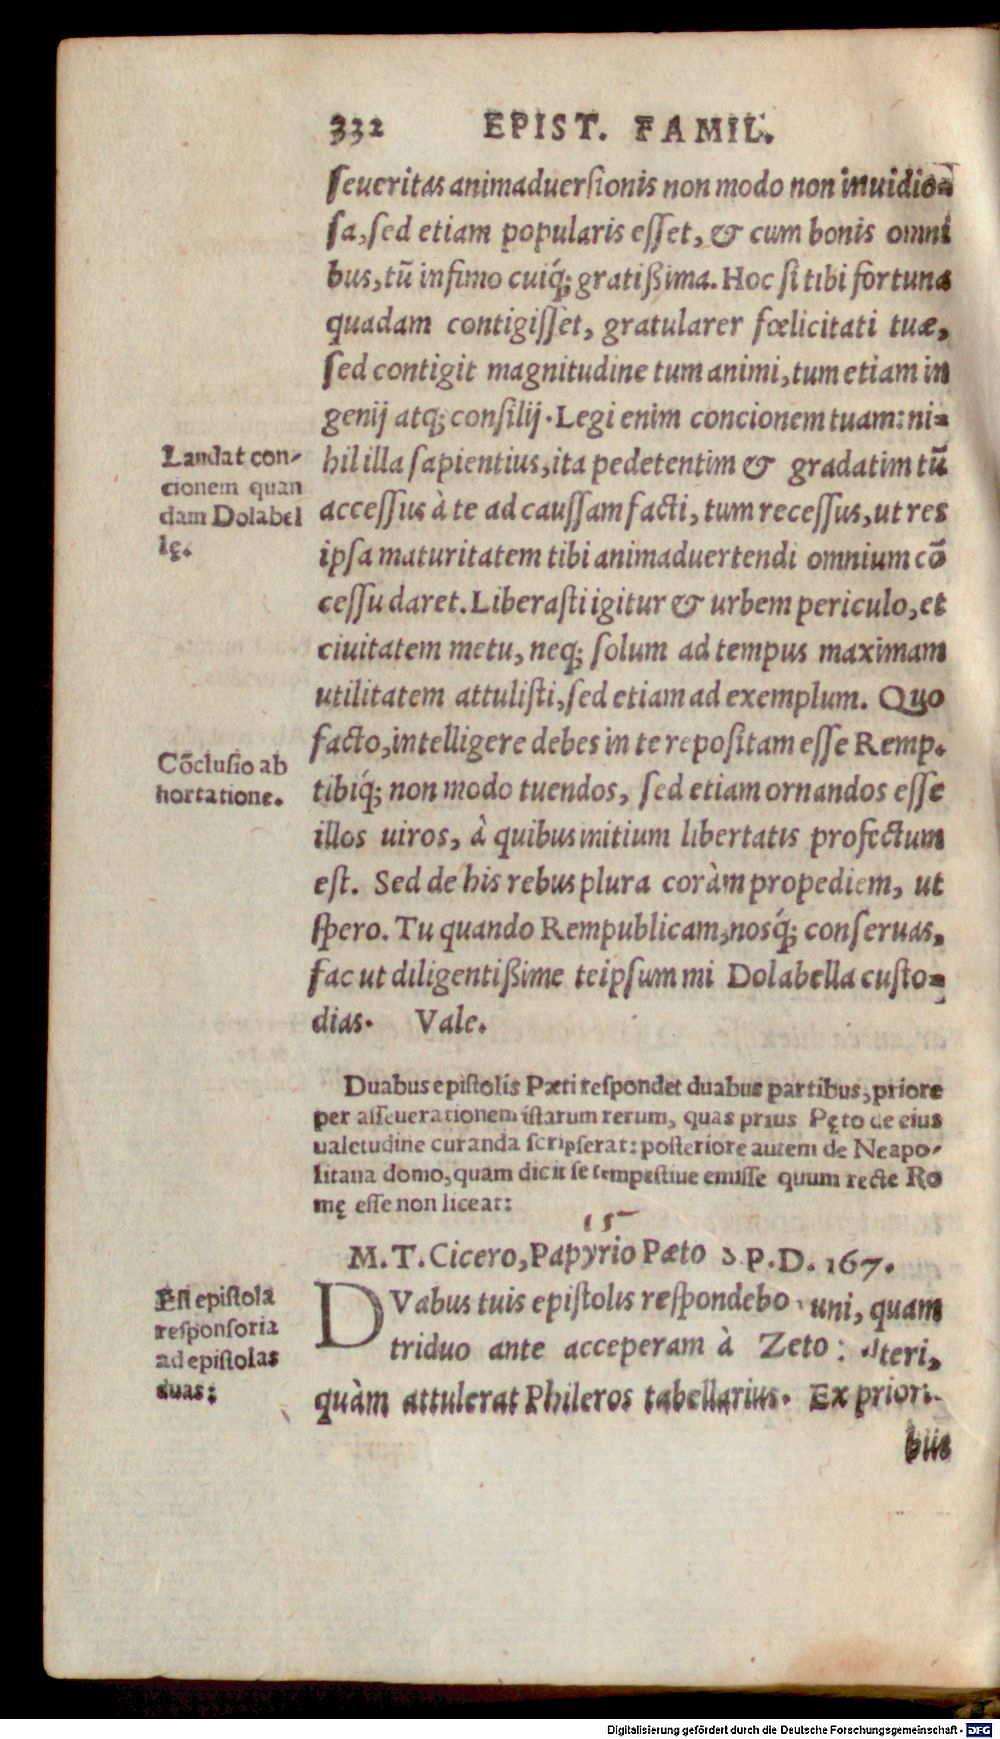 332 EPIST. FAMIL.
seueritas animaduersionis non modo non inuidio=
sa, sed etiam popularis esset, & cum bonis omni
bus, tũ infimo cuiq́; gratißima. Hoc si tibi fortuna
quadam contigisset, gratularer fœlicitati tuæ,
sed contigit magnitudine tum animi, tum etiam in
genij atq; consilij. Legi enim concionem tuam: ni=
hil illa sapientius, ita pedetentim & gradatim tũ
accessus à te ad caussam facti, tum recessus, ut res
ipsa maturitatem tibi animaduertendi omnium cõ
cessu daret. Liberasti igitur & urbem periculo, et
ciuitatem metu, neq; solum ad tempus maximam
utilitatem attulisti, sed etiam ad exemplum. Quo
facto, intelligere debes in te repositam esse Remp.
tibiq́; non modo tuendos, sed etiam ornandos esse
illos uiros, à quibus initium libertatis profectum
est. Sed de his rebus plura coràm propediem, ut
spero. Tu quando Rempublicam, nosq́; conseruas,
fac ut diligentißime teipsum mi Dolabella custo=
dias. Vale.
Laudat con-
cionem quan
dam Dolabel
lę.
Cõclusio ab
hortatione.
Duabus epistolis Pæti respondet duabus partibus, priore
per asseuerationem istarum rerum, quas prius Pęto de eius
ualetudine curanda scripserat: posteriore autem de Neapo-
litana domo, quam dicit se tempestiue emisse quum recte Ro
mę esse non liceat:
15
M. T. Cicero, Papyrio Pæto S P. D. 167.
DVabus tuis epistolis respondebo, uni, quam
triduo ante acceperam à Zeto: alteri,
quàm attulerat Phileros tabellarius. Ex priori-
bus
Est epistola
responsoria
ad epistolas
duas:
Digitalisierung gefördert durch die Deutsche Forschungsgemeinschaft - DFG